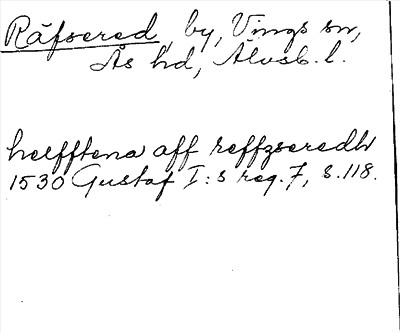 Räfsered, by, Vings sn,
Ås hd, Älvsb. l.
helfftena aff reffzseredh
1530 Gustaf I:s reg. 7, s. 118.